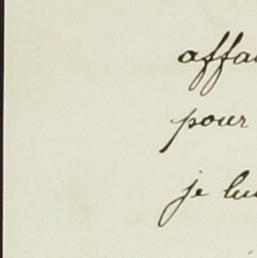 affai
pour
je lui